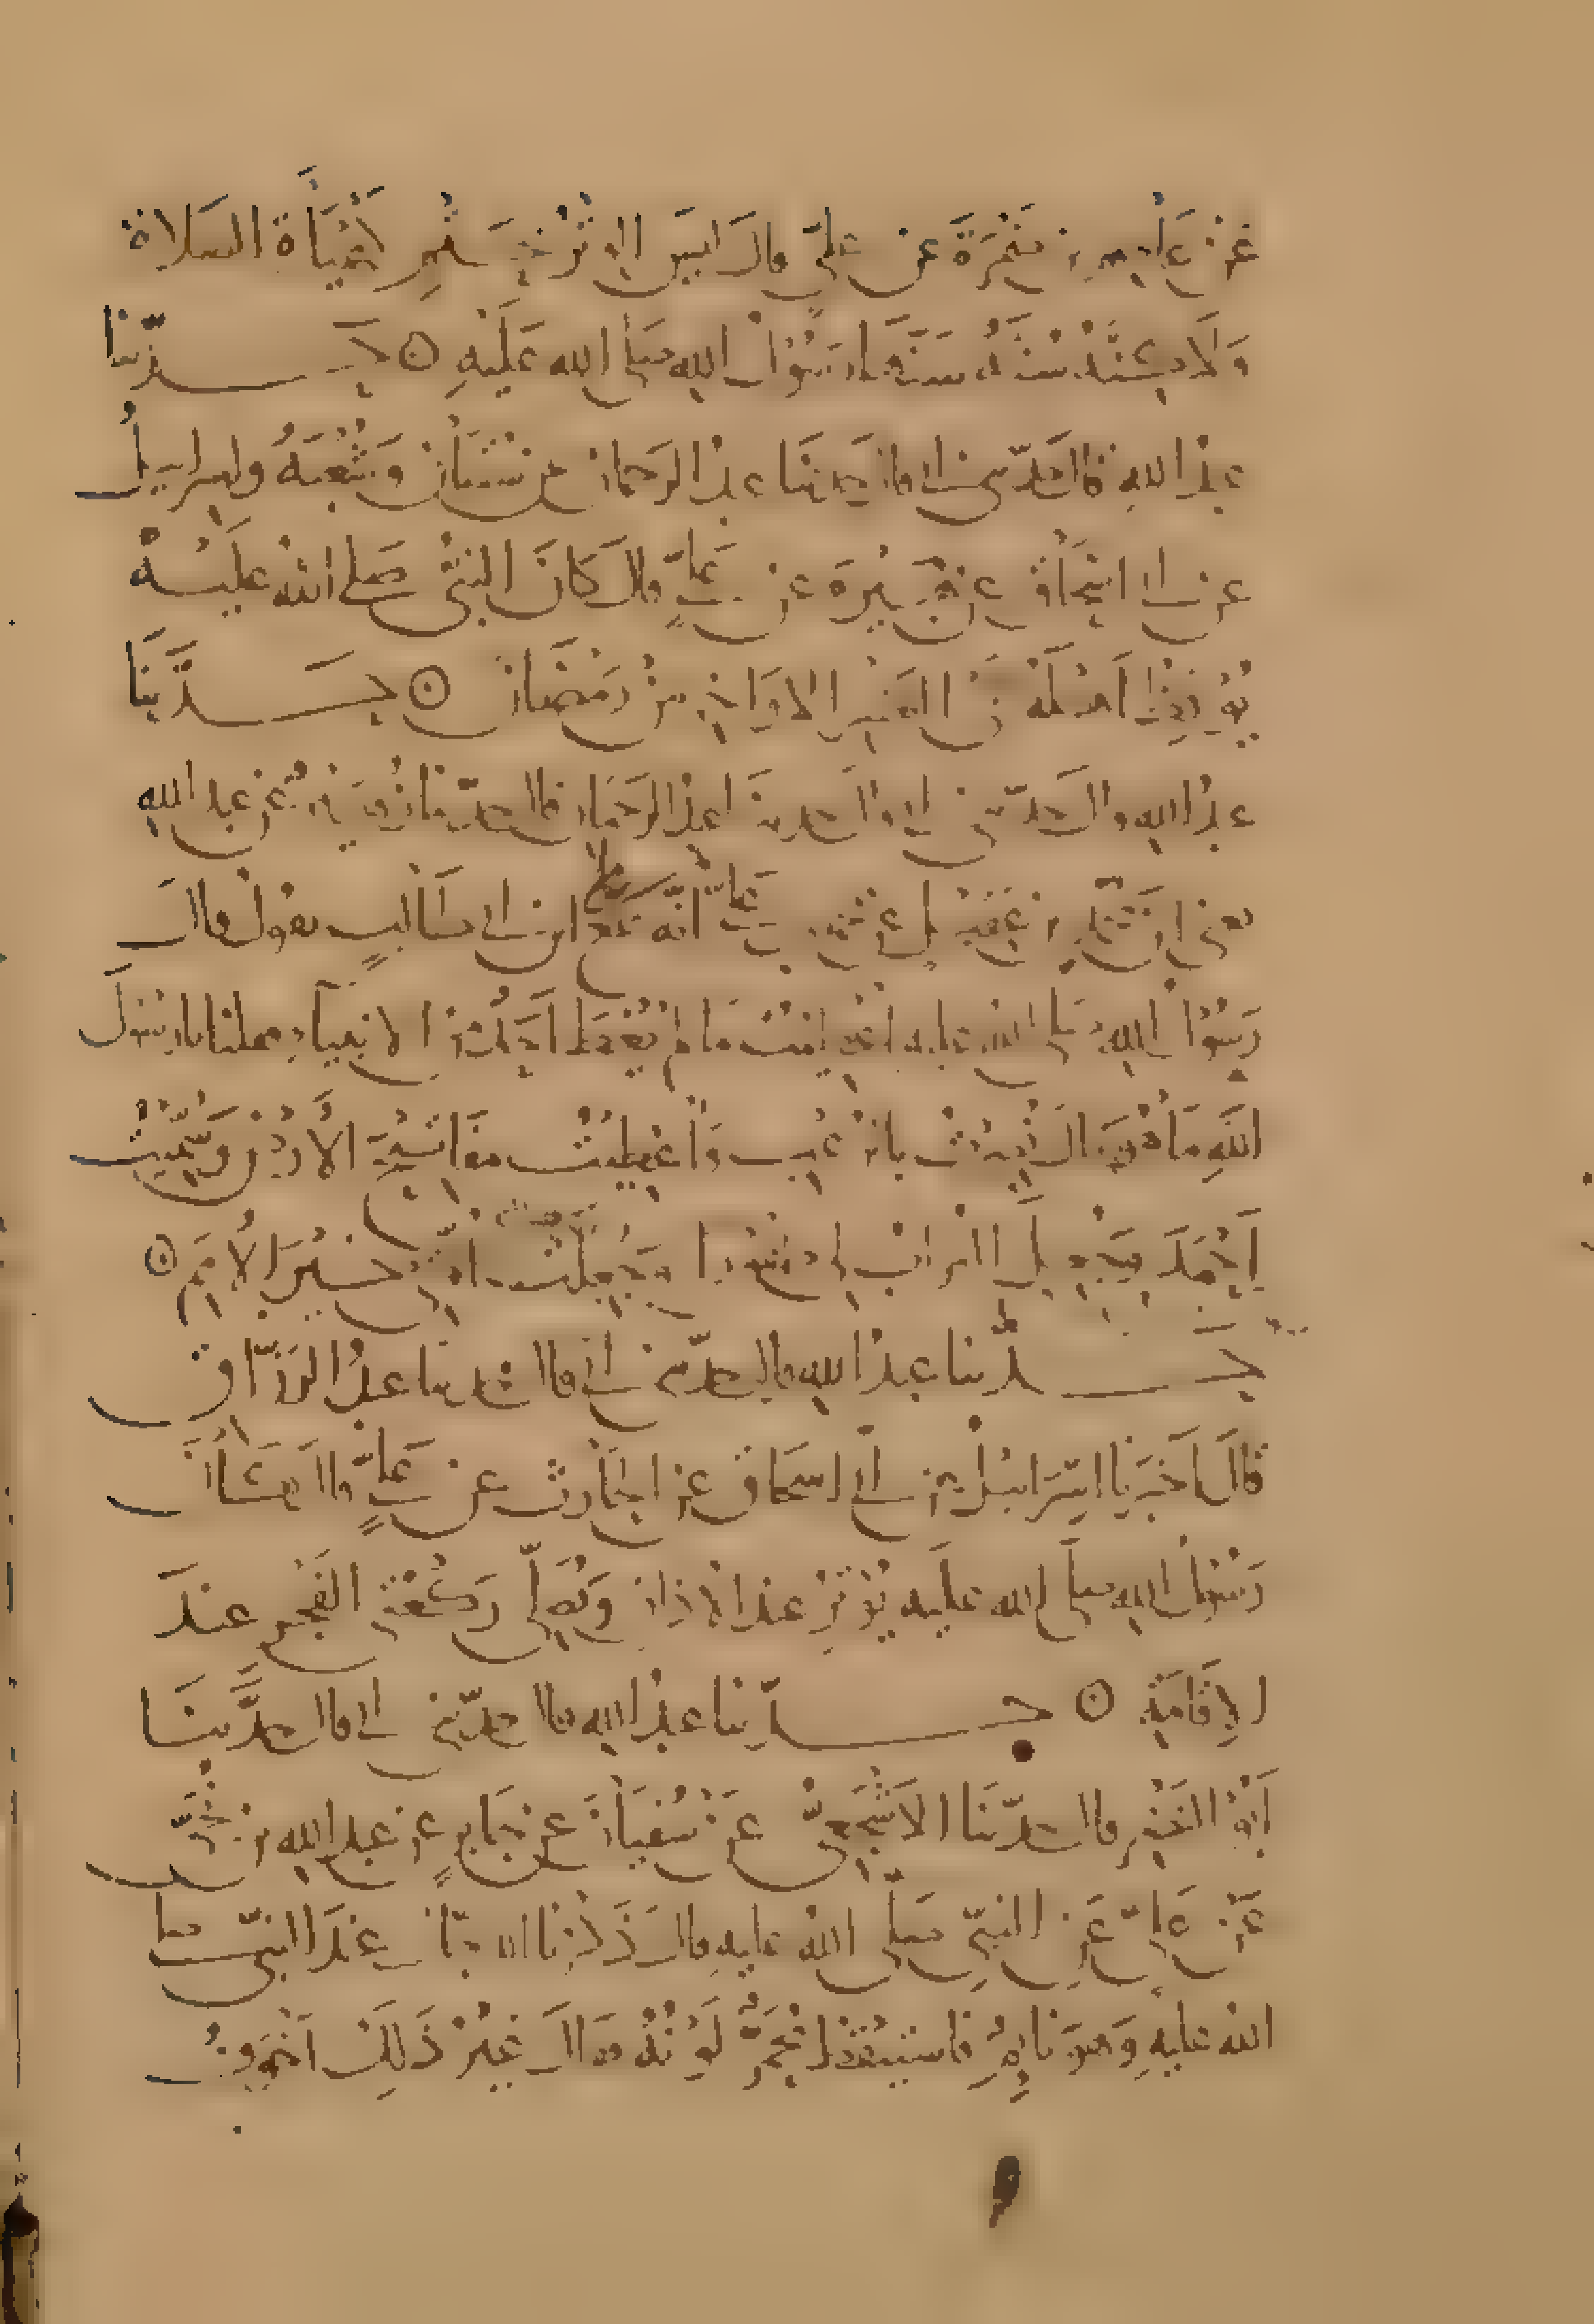 عَن عَاصِمِ بن ضَمْرَةَ عن عليٍّ قالَ ليسَ الوِتْرُ بِحَتْمٍ كَهَيْأَةِ الصَلاةِ
وَلَكِنْ سُنَّةٌ سَنَّهَا رَسُوْلُ اللهِ صلى الله عَلَيْهِ ⊙ حَدّثنا
عبدُ اللهِ قال حَدّثني أبي قال حدثنا عبدُ الرَحمان عن سُفْيَانَ وَشُعْبَةَ واسرائيلَ
عن أبي اسْحَاقَ عن هُبَيْرَةَ عن عَليٍّ قالَ كَانَ النبيُّ صَلى اللهُ عَلَيْهِ
يُوْقِظُ أَهْلَهُ في العَشْرِ الاوَاخِرِ مِنْ رَمَضَانَ ⊙ حَدَّثَنَا
عبدُ اللهِ قالَ حَدّثني أبي قالَ حدثنَا عبدُ الرحمَان قال حدّثنا زُهَيْرٌ عن عبد اللهِ
يعني ابنَ مُحمّدِ بنِ عَقِيْلٍ عن محمّدِ بنِ عَليٍّ أنّه سَمِعَ عَليَّ ابن أبي طَالِبٍ يقولُ قالَ
رَسُوْلُ اللهِ صَلى اللهُ عليه أُعْطِيْتُ مَا لم يُعْطَ أحَدٌ مِنَ الانبيَآءِ فقلنا يا رسُولَ
اللهِ مَا هُوَ قال نُصِرْتُ بالرُعْبِ وَأُعْطِيْتُ مفَاتِيْحَ الأَرْضِ وَسُمِّيْتُ
أَحْمَدَ وَجُعِلَ التُرابُ لِي طَهُوْرا وَجُعِلَتْ أُمّتي خَيْرَ الأُمَمِ ⊙
حَدّثنا عبدُ اللهِ قال حدّثني أبي قال حدثنا عبدُ الرزّاقِ
قالَ أخبَرَنا اسْرَائيْلُ عن أبي اسحَاقَ عن الحَارث عن عَليٍّ قالَ كَانَ
رَسُوْلُ اللهِ صلى الله عليه يُوْتِرُ عند الأذانِ وَيُصَلِّي رَكْعَتي الفَجْرِ عندَ
الاِقَامَةِ ⊙ حَدّثنا عبدُ اللهِ قال حدّثني أبي قال حدَّثنَا
أَبُو النَضْرِ قال حدّثنَا الأَشْجَعِيُّ عَن سُفيَانَ عن جَابرٍ عن عبد اللهِ بن نُجَيٍّ
عَن عَليٍّ عَنِ النبيِّ صَلى اللهُ عليهِ قالَ ذَكَرْنا الدجّالَ عِنْدَ النبيِّ صلى
اللهُ عليهِ وَهوَ نَايِمٌ فاستيقظَ مُحْمَرًّا لَوْنُهُ فقالَ غَيْرُ ذَلِكَ أَخْوَفُ